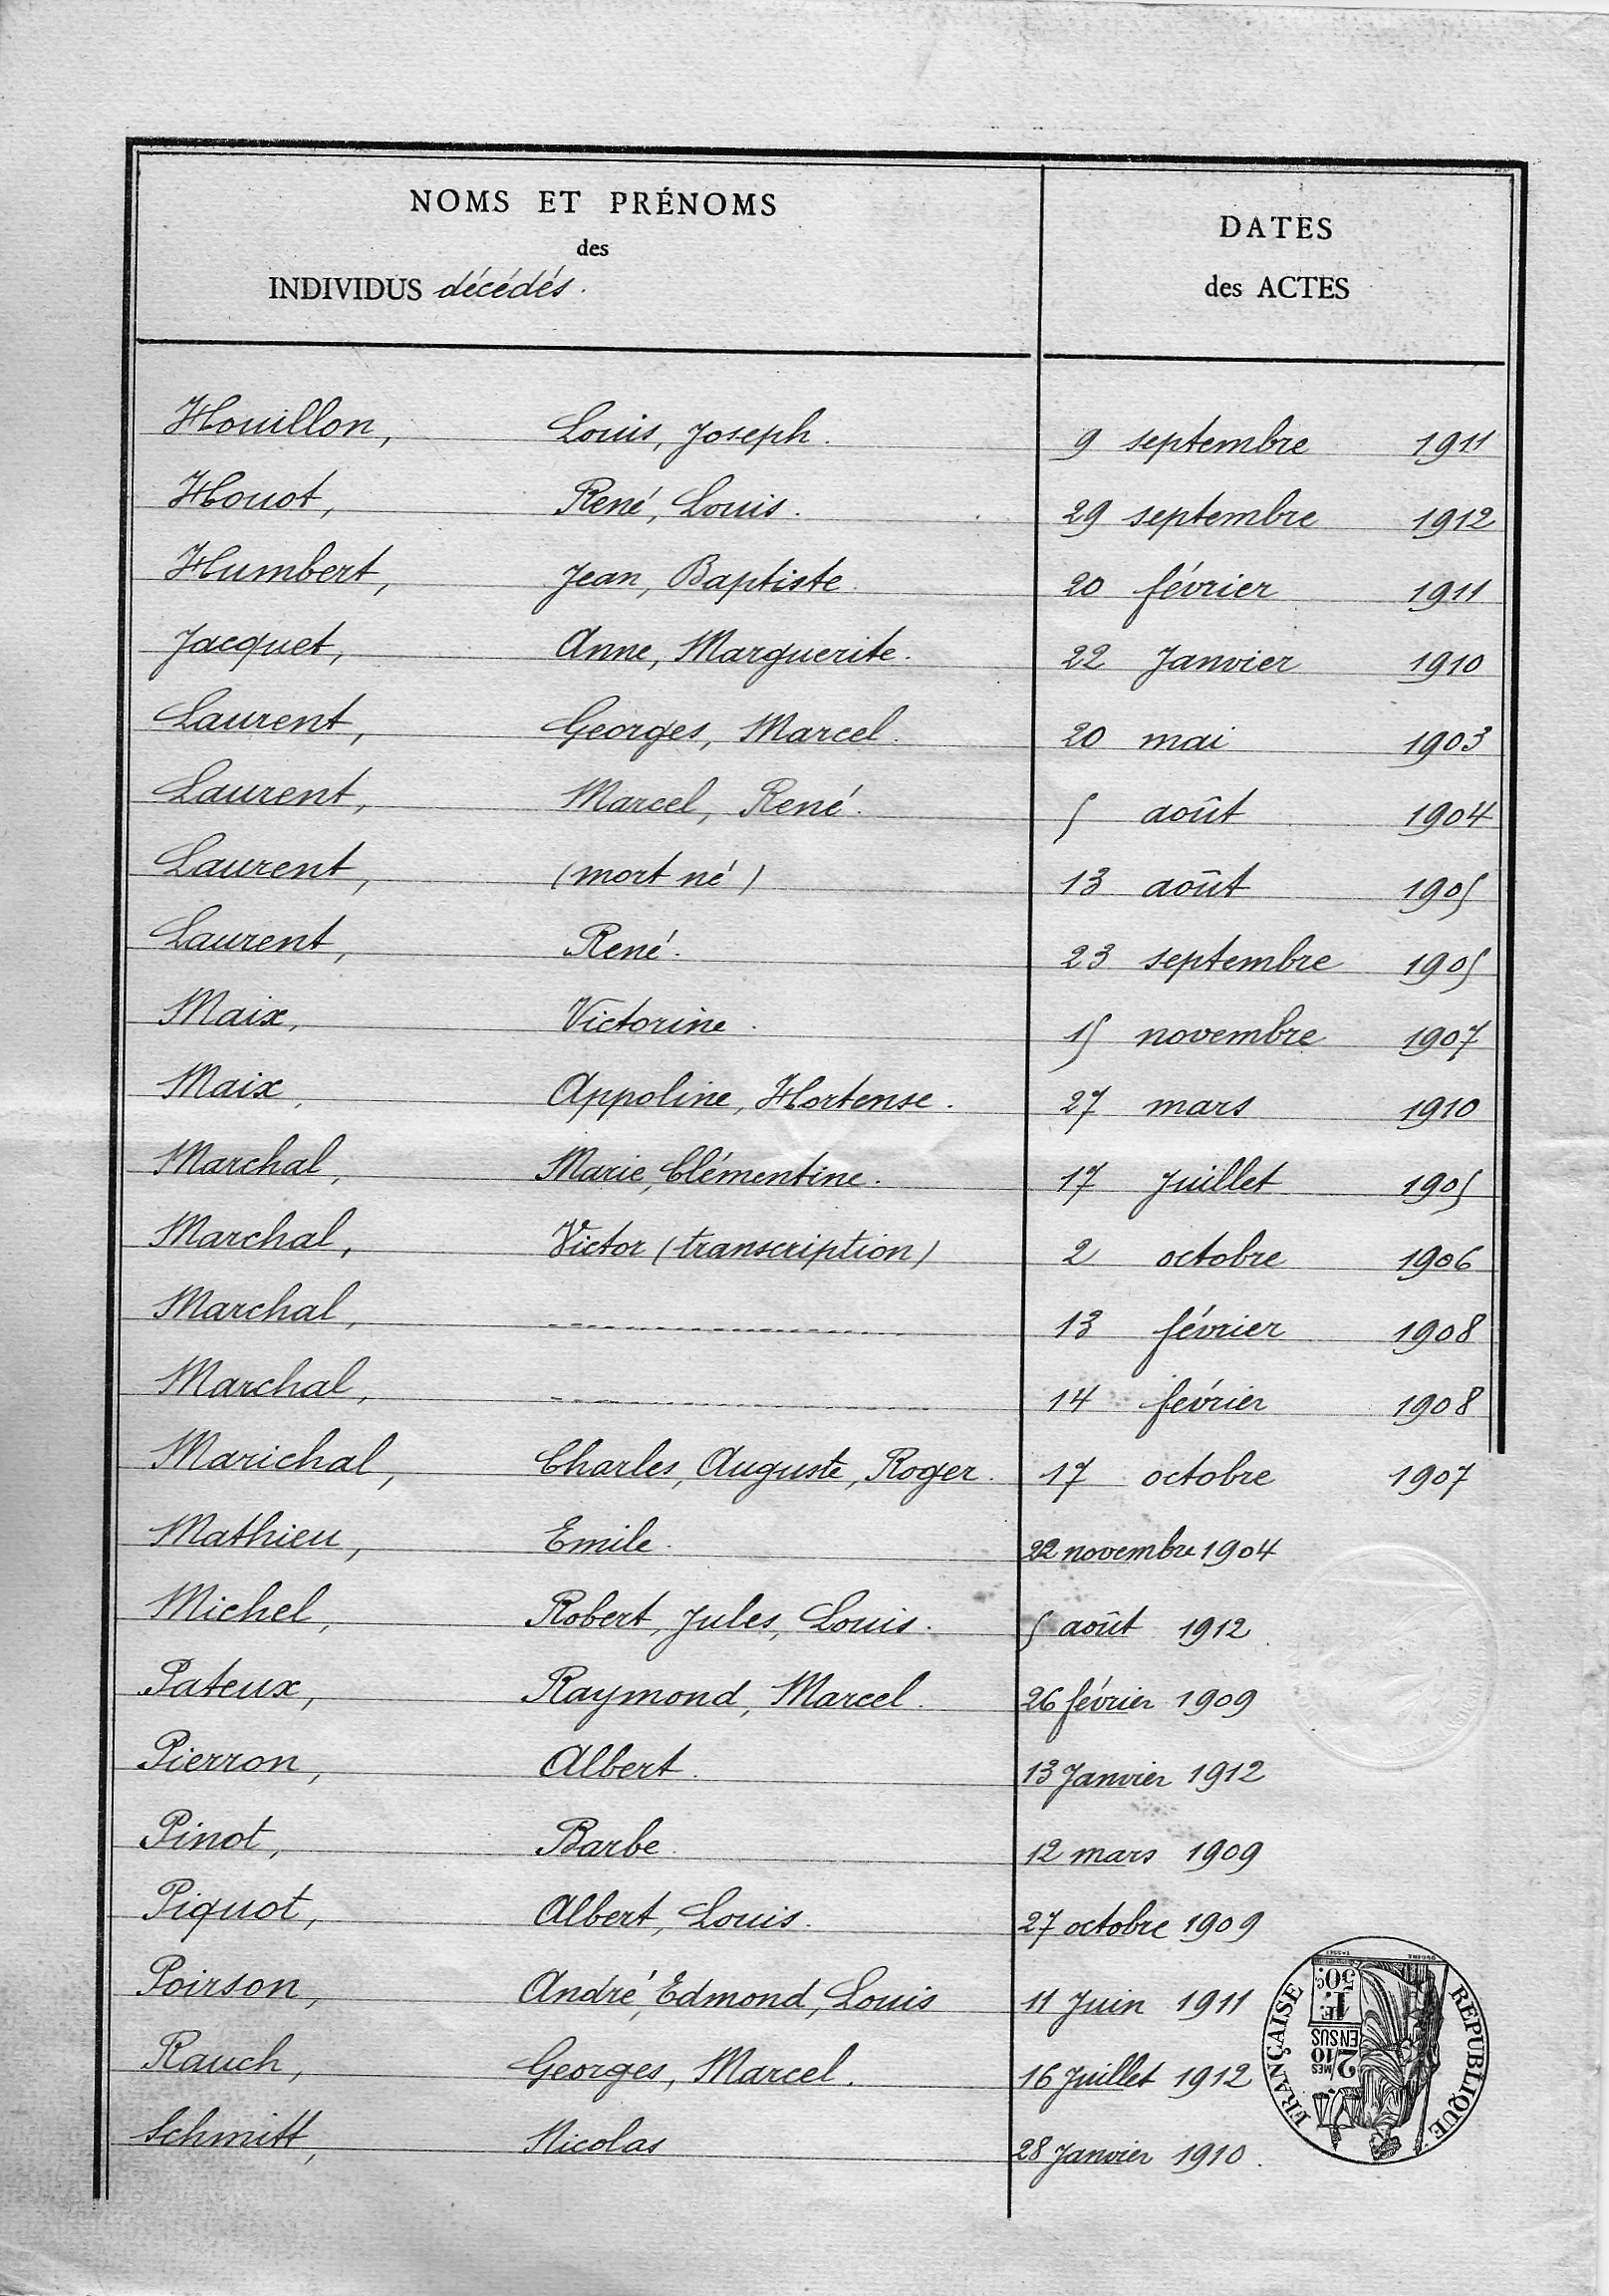 NOMS ET PRÉNOMS
des
INDIVIDUS décédés.
DATES
des ACTES
Houillon, Louis, Joseph. 9 septembre 1911
Houot, René, Louis. 29 septembre 1912
Humbert, Jean, Baptiste. 20 février 1911
Jacquet, Anne, Marguerite. 22 Janvier 1910
Laurent, Georges, Marcel. 20 mai 1903
Laurent, Marcel, René. 5 août 1904
Laurent, (mort né) 13 août 1905
Laurent, René. 23 septembre 1905
Maix, Victorine. 15 novembre 1907
Maix, Appoline, Hortense. 27 mars 1910
Marchal, Marie, Clémentine. 17 Juillet 1905
Marchal, Victor (transcription) 2 octobre 1906
Marchal, -------------------- 13 février 1908
Marchal, -------------------- 14 février 1908
Marichal, Charles, Auguste, Roger. 17 octobre 1907
Mathieu, Emile. 22 novembre 1904
Michel, Robert, Jules, Louis. 5 août 1912.
Pateux, Raymond, Marcel. 26 février 1909
Pierron, Albert. 13 Janvier 1912
Pinot, Barbe. 12 mars 1909
Piquot, Albert, Louis. 27 octobre 1909
Poirson, André, Edmond, Louis 11 Juin 1911
Rauch, Georges, Marcel. 16 Juillet 1912
Schmitt, Nicolas 28 Janvier 1910.
RÉPUBLIQUE FRANÇAISE
1F. 50c.
2/10 MES
EN SUS
TASSET